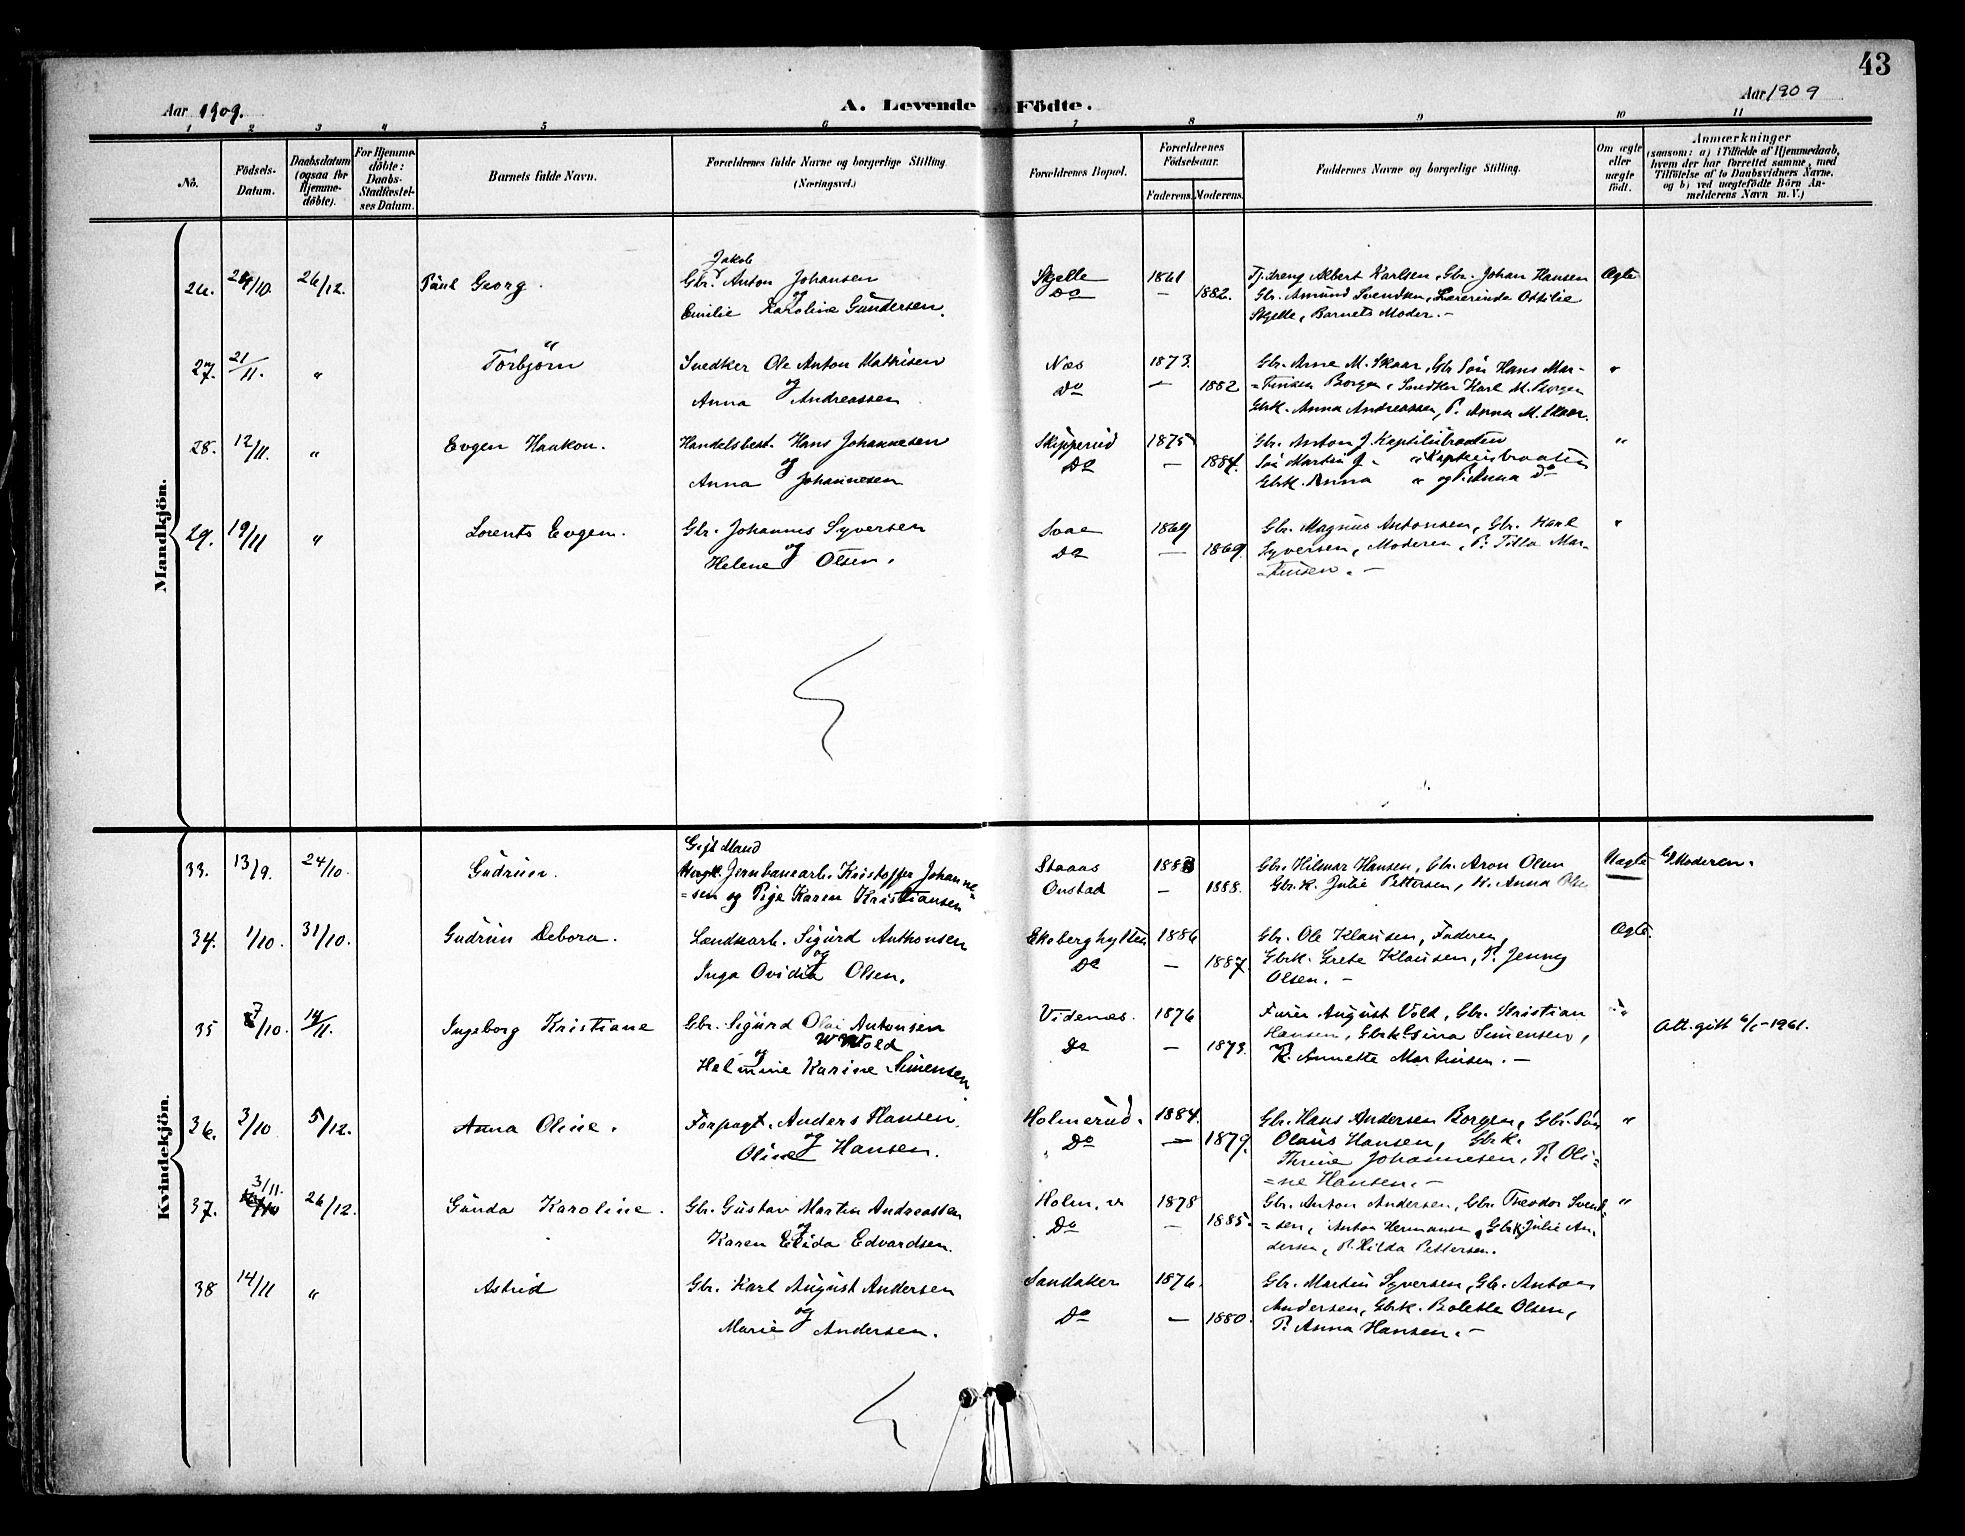 43
Aar 1909.
A. Levende Födte.
Aar 1909
1 2 3 4 5 6 7 8 9 10 11
No.
Födsels-Datum.
Daabsdatum (ogsaa for Hjemme-döbte).
For Hjemme-döbte: Daabs-Stadfæstel-ses Datum.
Barnets fulde Navn.
Forældrenes fulde Navne og borgerlige Stilling. (Næringsvei.)
Forældrenes Bopæl.
Forældrenes Födselsaar.
Faderens. Moderens.
Faddernes Navne og borgerlige Stilling.
Om ægte eller uægte födt.
Anmærkninger
(saasom: a) i Tilfælde af Hjemmedaab, hvem der har forrettet samme, med Tilföielse af to Daabsvidners Navne, og b) ved uægtefödte Börn An-melderens Navn m. V.)
Mandkjön.
26. 24/10. 26/12. Paul Georg.
Jakob
Gbr. Anton Johansen
og
Emilie Karoline Gundersen.
Skjelle 1861
Do — 1882.
Tj.dreng Albert Karlsen, Gbr. Johan Hansen
Gbr. Amund Svendsen, Lærerinde Ottilie
Skjelle, Barnets Moder. —
Ægte
27. 21/11. " Torbjörn
Snedker Ole Anton Mathisen
og
Anna Andreassen
Næs 1873.
Do — 1882
Gbr. Arne M. Skaar, Gbr Sön Hans Mar-
=tinsen Borgen, Snedker Karl M. Borgen
Gbrk. Anna Andreassen, P. Anna M. Skaar.
"
28. 12/11. " Evgen Haakon.
Handelsbest. Hans Johannesen
og
Anna Johannesen
Skipperud 1875
Do — 1884.
Gbr. Anton J.
Sön Martin J.
Gbrk. Anna " og P. Anna Do
"
29. 19/11 " Lorents Evgen.
Gbr. Johannes Syversen
og
Helene Olsen.
Svae 1869
Do — 1869.
Gbr. Magnus Antonsen, Gbr. Karl
Syversen, Moderen, P. Tilla Mar-
=tinsen. —
"
Kvindekjön.
33. 13/9. 24/10. Gudrun.
Gift Mand
Jernbanearb. Kristoffer Johanne
=sen og Pige Karen Kristiansen
Staaas 1883
Onstad — 1888.
Gbr. Hilmar Hansen, Gbr. Aron Olsen
Gbr.K. Julie Pettersen, K. Anna Olse
Uægte
Moderen.
34. 1/10. 31/10. Gudrun Debora.
Landsarb. Sigurd Anthonsen
og
Inga Ovidia Olsen.
Ekeberghytten 1886
Do — 1887.
Gbr. Ole Klausen, Faderen,
Gbrk. Grete Klausen, P. Jenny
Olsen. —
Ægte.
35 7/10. 14/11. Ingeborg Kristiane
Gbr. Sigurd Olai Antonsen
Wold
og
Helmine Karine Simensen
Videnæs. 1876
Do — 1873.
Furer August Vold, Gbr. Kristian
Hansen, Gbrk Gina Simensen,
P. Annette Martinsen. —
"
Att. gitt 6/1-1961.
36. 3/10 5/12. Anna Oline.
Forpagt. Anders Hansen
og
Oline Hansen.
Holmerud. 1884.
Do — 1879.
Gbr. Hans Andersen Borgen, Gbr. Sön
Olaus Hansen, Gbr.k.
Thrine Johannesen, P. Oli=
=ne Hansen. —
"
37. 3/11. 26/12. Gunda Karoline.
Gbr. Gustav Martin Andreassen
og
Karen Elida Edvardsen.
Holm, v 1878
Do — 1885.
Gbr. Anton Andersen, Gbr. Theodor Svend-
=sen, Anton Hermansen, Gbrk Julie An-
dersen, P. Hilda Pettersen.
"
38 14/11 " Astrid
Gbr. Karl August Andersen
og
Marie Andersen.
Sandaker 1876.
Do — 1880.
Gbr. Martin Syversen, Gbr. Anton
Andersen, Gbrk. Bolette Olsen,
P. Anna Hansen. —